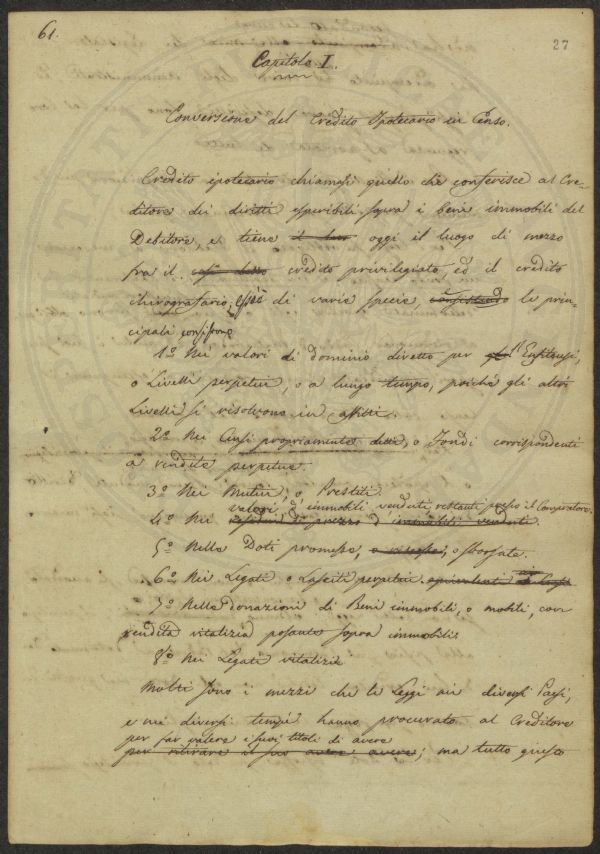 61.
27
Capitolo I.
Conversione del Credito Ipotecario in Censo.
Credito ipotecario chiamasi quello che conferisce al Cre-
ditore dei diritti esperibili sopra i beni immobili del
Debitore, e tiene oggi il luogo di mezzo
fra il credito privilegiato, ed il credito
chirografario; di varie specie le prin-
cipali consistono
1º Nei valori di dominio diretto per Enfiteusi,
o Livelli perpetui, o a lungo tempo, poichè gli altri
Livelli si risolvono in affitti.
2º Nei Censi propriamente detti, o Fondi corrispondenti
a rendite perpetue.
3º Nei Mutui, o Prestiti.
valori d'immobili venduti, restanti presso il Compratore.
4º Nei residui di prezzo d'immobili venduti.
5º Nelle Doti promesse, o sborsate.
6º Nei Legati o Lasciti perpetui.
7º Nelle donazioni di Beni immobili, o mobili, con
rendita vitalizia posante sopra immobili
8º Nei Legati vitalizii
Molti sono i mezzi che le Leggi nei diversi Paesi,
e nei diversi tempi hanno procurato al Creditore
per far valere i suoi titoli di avere
per ritirare il suo avere; ma tutto questo